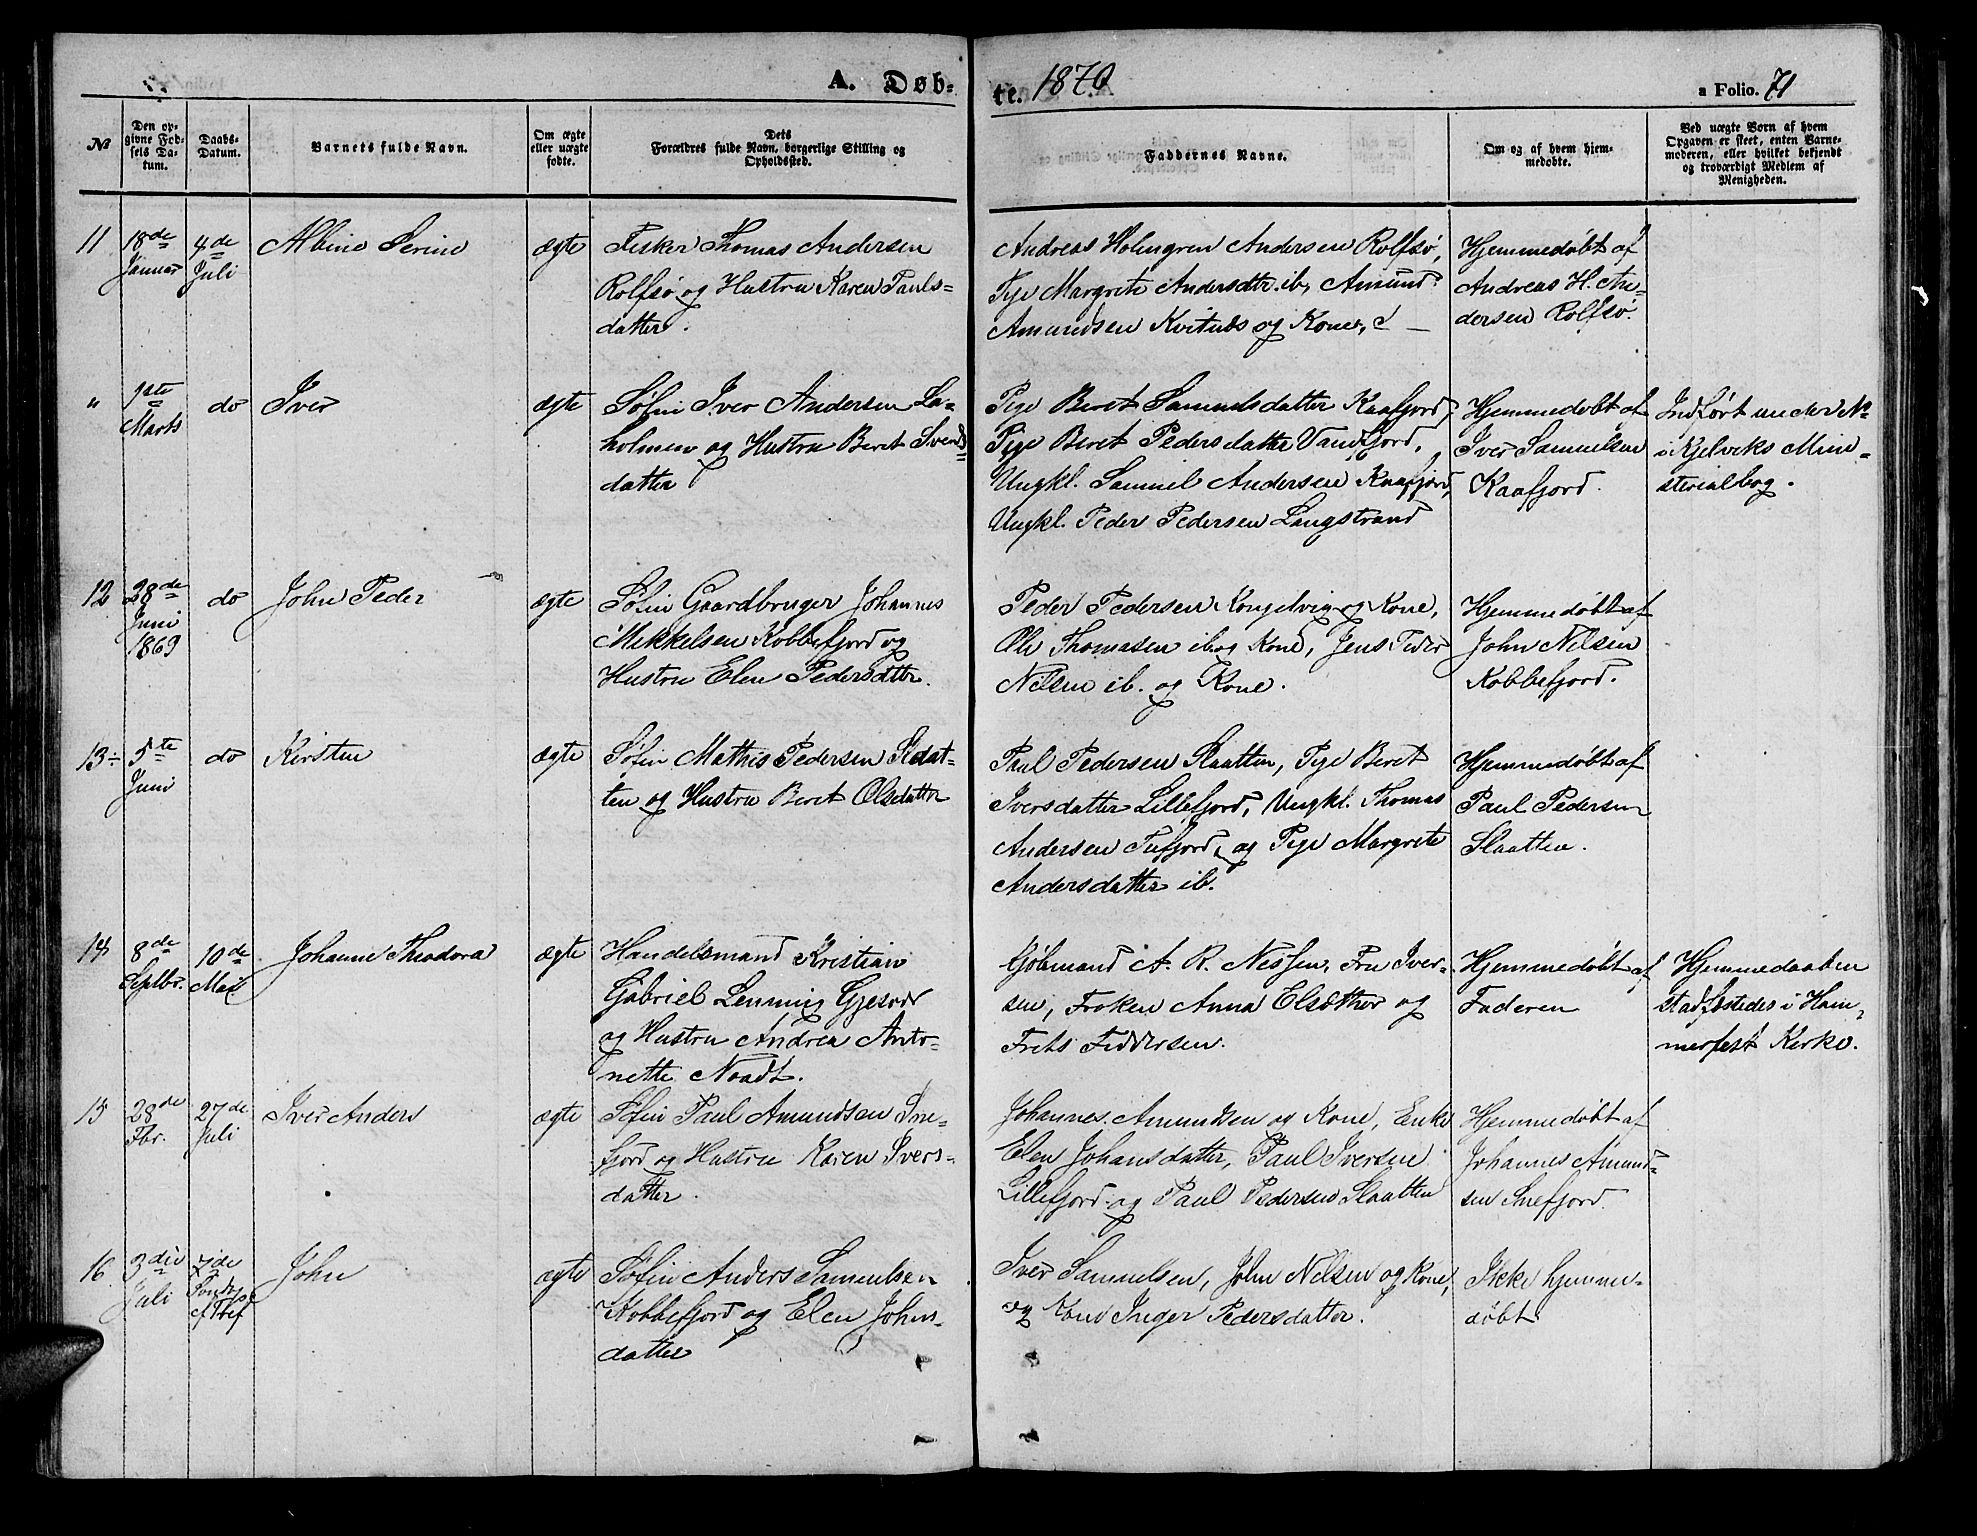 A. Døb-
te. 1870
a Folio. 71
№
Den op-
givne Fød-
sels Da-
tum.
Daabs-
Datum.
Barnets fulde Navn.
Om ægte
eller uægte
fødte.
Dets
Forældres fulde Navn, borgerlige Stilling og
Opholdssted.
Faddernes Navne.
Om og af hvem hjem-
medøbte.
Ved uægte Børn af hvem
Opgaven er skeet, enten Barne-
moderen, eller hvilket bekjendt
og troværdigt Medlem af
Menigheden.
11
18de
Januar
4de
Juli
Albine Serine
ægte
Fisker Thomas Andersen
Rolfsø og Hustru Karen Pauls-
datter.
Andreas Holmgren Andersen Rolfsø,
Pige Margrete Andersdtr. ib, Amund
Amundsen Kvitnæs og Kone,
Hjemmedøbt af
Andreas H. An-
dersen Rolfsø.
"
1ste
Marts
do
Iver
ægte
Søfin Iver Andersen La-
holmen og Hustru Beret Ivers-
datter
Pige Beret Samuelsdatter Kaafjord,
Pige Beret Pedersdatter Vandfjord,
Ungkl. Samuel Andersen Kaafjord,
Ungkl. Peder Pedersen Langstrand
Hjemmedøbt af
Iver Samuelsen
Kaafjord.
Indført under №
i Kjelviks Mini-
sterialbog.
12
28de
Juni
1869
do
John Peder
ægte
Søfin Gaardbruger Johannes
Mikkelsen Kobbefjord og
Hustru Elen Pedersdatter.
Peder Pedersen Kongelvig og Kone,
Ole Thomasen ib og Kone, Jens Peder
Nilsen ib. og Kone.
Hjemmedøbt af
John Nilsen
Kobbefjord.
13
5te
Juni
do
Kirsten
ægte
Søfin Mathis Pedersen Slaat-
ten og Hustru Beret Olsdatter
Paul Pedersen Slaatten, Pige Beret
Iversdatter Lillefjord, Ungkl. Thomas
Andersen Tufjord, og Pige Margrete
Andersdatter ib.
Hjemmedøbt af
Paul Pedersen
Slaatten.
14
8de
Septbr.
10de
Mai
Johanne Theodora
ægte
Handelsmand Kristian
Gabriel Lemming Gjesvær
og Hustru Andrea Anto-
nette Noadt.
Kjøbmand A. R. Nessen, Fru Iver-
sen, Frøken Anna Elsæther og
Frits Fiddersen.
Hjemmedøbt af
Faderen
Hjemmedaaben
stadfæstedes i Ham-
merfest Kirke.
15
28de
Fbr.
27de
Juli
Iver Anders
ægte
Søfin Paul Amundsen Sne-
fjord og Hustru Karen Ivers-
datter.
Johannes Amundsen og Kone, Enke
Elen Johansdatter, Paul Iversen
Lillefjord og Paul Pedersen Slaatten
Hjemmedøbt af
Johannes Amund-
sen Snefjord.
16
3die
Juli
7de
John
ægte
Søfin Anders Samuelsen
Kobbefjord og Elen Johns-
datter
Iver Samuelsen, John Nilsen og Kone,
og Kone Inger Pedersdatter.
Ikke hjemme-
døbt